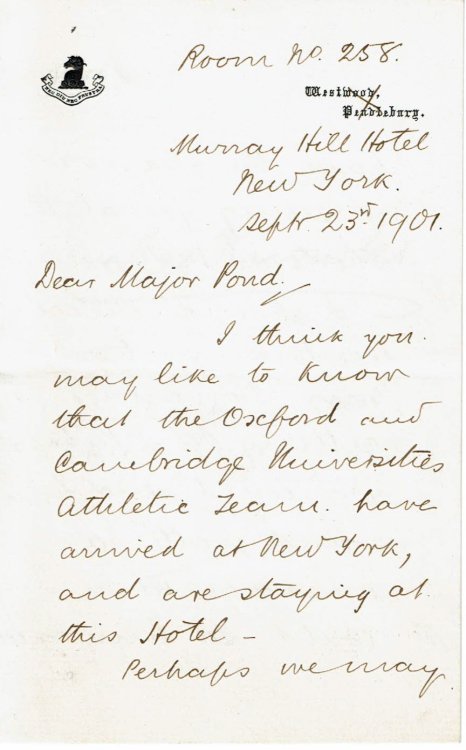 Room No. 258.
Westwood,
Pendlebury.
Murray Hill Hotel
New York.
Septr. 23rd. 1901.
Dear Major Pond.
I think you
may like to know
that the Oxford and
Cambridge Universities
Athletic Team. have
arrived at New York,
and are staying at
this Hotel –
Perhaps we may